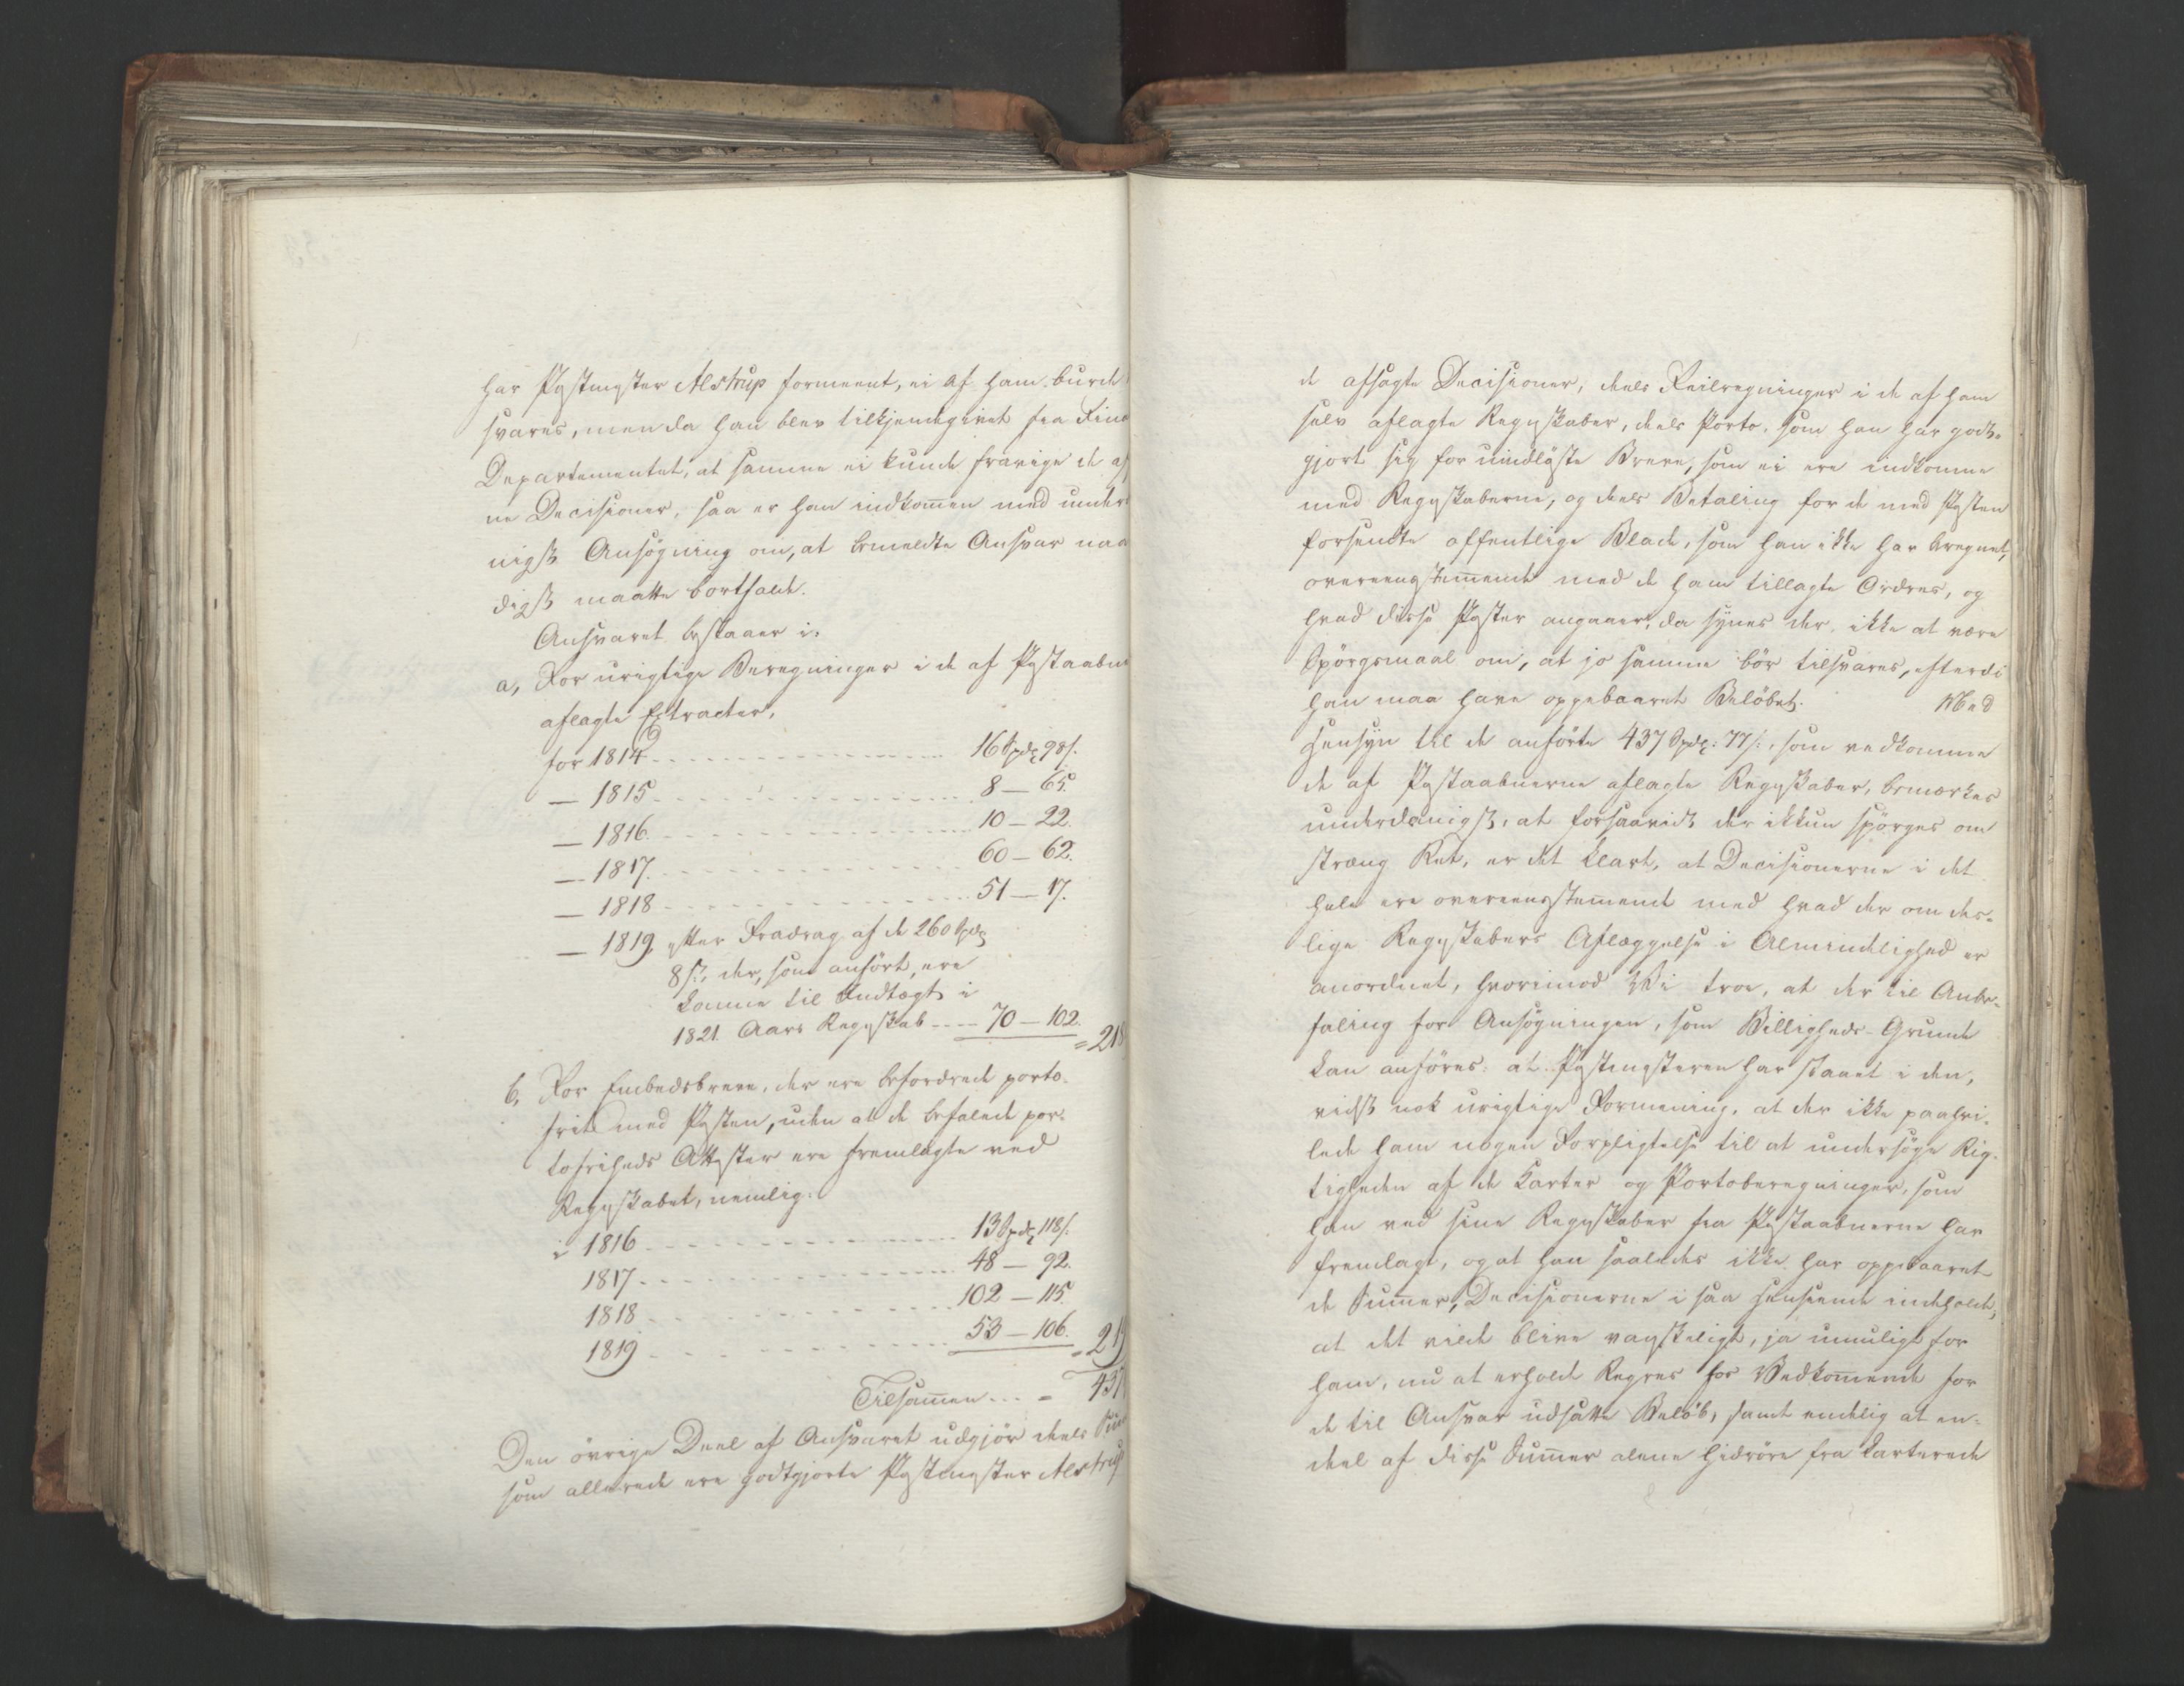 har Postmester Alstrup formeent, ei af ham burde
svares, men da han blev tilkjendegivet fra Fina
Departementet, at samme ei kunde fravige de af
ne Decisioner, saa er han indkom̄en med under
nigst Ansøgning om, at bemeldte Ansvar naa
digst maatte bortfalde.
Ansvaret bestaaer i:
a, For urigtige Beregninger i de af Postaabne
aflagte Extracter,
for 1814 16 Spdr 98 s.
— 1815 8 — 65.
— 1816 10 — 22.
— 1817. 60 — 62.
— 1818 51 — 17.
— 1819, efter Fradrag af de 260 Spdr
8 s., der, som anført, ere
komne til Indtægt i
1821 Aars Regnskab 70 — 102.
= 218
b, For Embedsbreve, der ere befordrede porto-
frit med Posten, uden at de befalede por-
tofriheds Attester ere fremlagte ved
Regnskabet, nemlig:
i 1816 13 Spdr 118 s.
1817 48 — 92.
1818 102 — 115.
1819 53 — 106.
= 219
Tilsam̄en = 437
Den øvrige Deel af Ansvaret udgjør deels
som allerede ere godtgjorte Postmester Alstrup
de afsagte Decisioner, deels Feilregninger i de af ham
selv aflagte Regnskaber, deels Porto, som han har godt-
gjort sig for uindløste Breve, som ei ere indkomne
med Regnskaberne, og deels Betaling for de med Posten
forsendte offentlige Blade, som han ikke har beregnet,
overeensstem̄ende med de ham tillagte Ordres, og
hvad disse Poster angaaer, da synes der ikke at være
Spørgsmaal om, at jo samme bør tilsvares, efterdi
han maa have oppebaaret Beløbet. Med
Hensyn til de anførte 437 Spdr: 77 s., som vedkomme
de af Postaabnerne aflagte Regnskaber, bemærkes
underdanigst, at forsaavidt der ikkun spørges om
stræng Ret, er det klart, at Decisionerne i det
hele ere overeensstem̄ende med hvad der om des-
lige Regnskabers Aflæggelse i Almindelighed er
anordnet, hvorimod Vi troe, at der til Anbe-
faling for Ansøgningen, som Billigheds-Grunde
kan anføres: at Postmesteren har staaet i den,
vidst nok urigtige Formening, at der ikke paahvi-
lede ham nogen Forpligtelse til at undersøge Rig-
tigheden af de Karter og Portoberegninger, som
han ved sine Regnskaber fra Postaabnerne har
fremlagt, og at han saaledes ikke har oppebaaret
de Sum̄er, Decisionerne i saa Henseende indeholde,
at det vilde blive vanskeligt, ja umuligt for
ham, nu at erholde Regres hos Vedkom̄ende for
de til Ansvar udsatte Beløb, samt endelig at en-
deel af disse Sum̄er alene hidrøre fra karterede